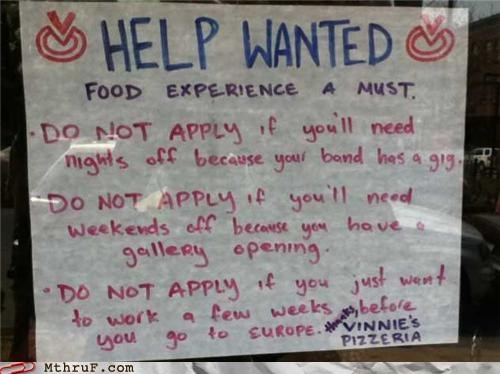 HELP WANTED
FOOD EXPERIENCE A MUST.
• DO NOT APPLY if you'll need
nights off because your band has a gig.
DO NOT APPLY if you'll need
weekends off because you have a
gallery opening.
• DO NOT APPLY if you just want
to work a few weeks, before
you go to EUROPE. thanks,
VINNIE'S
PIZZERIA
MThruF.com